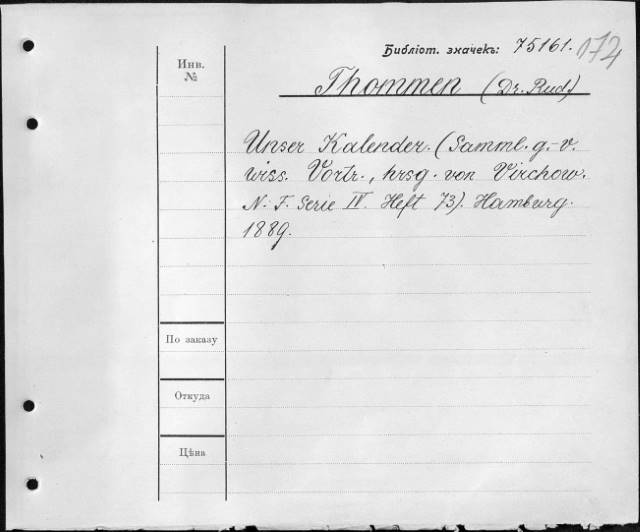 Библіот. значекъ: 75161. 172
Инв.
№
Thommen (Dr. Rud)
Unser Kalender. (Samml. g.-v.
wiss. Vortr., hrsg. von Virchow.
N. F. Serie IV. Heft 73). Hamburg.
1889.
По заказу
Откуда
Цѣна